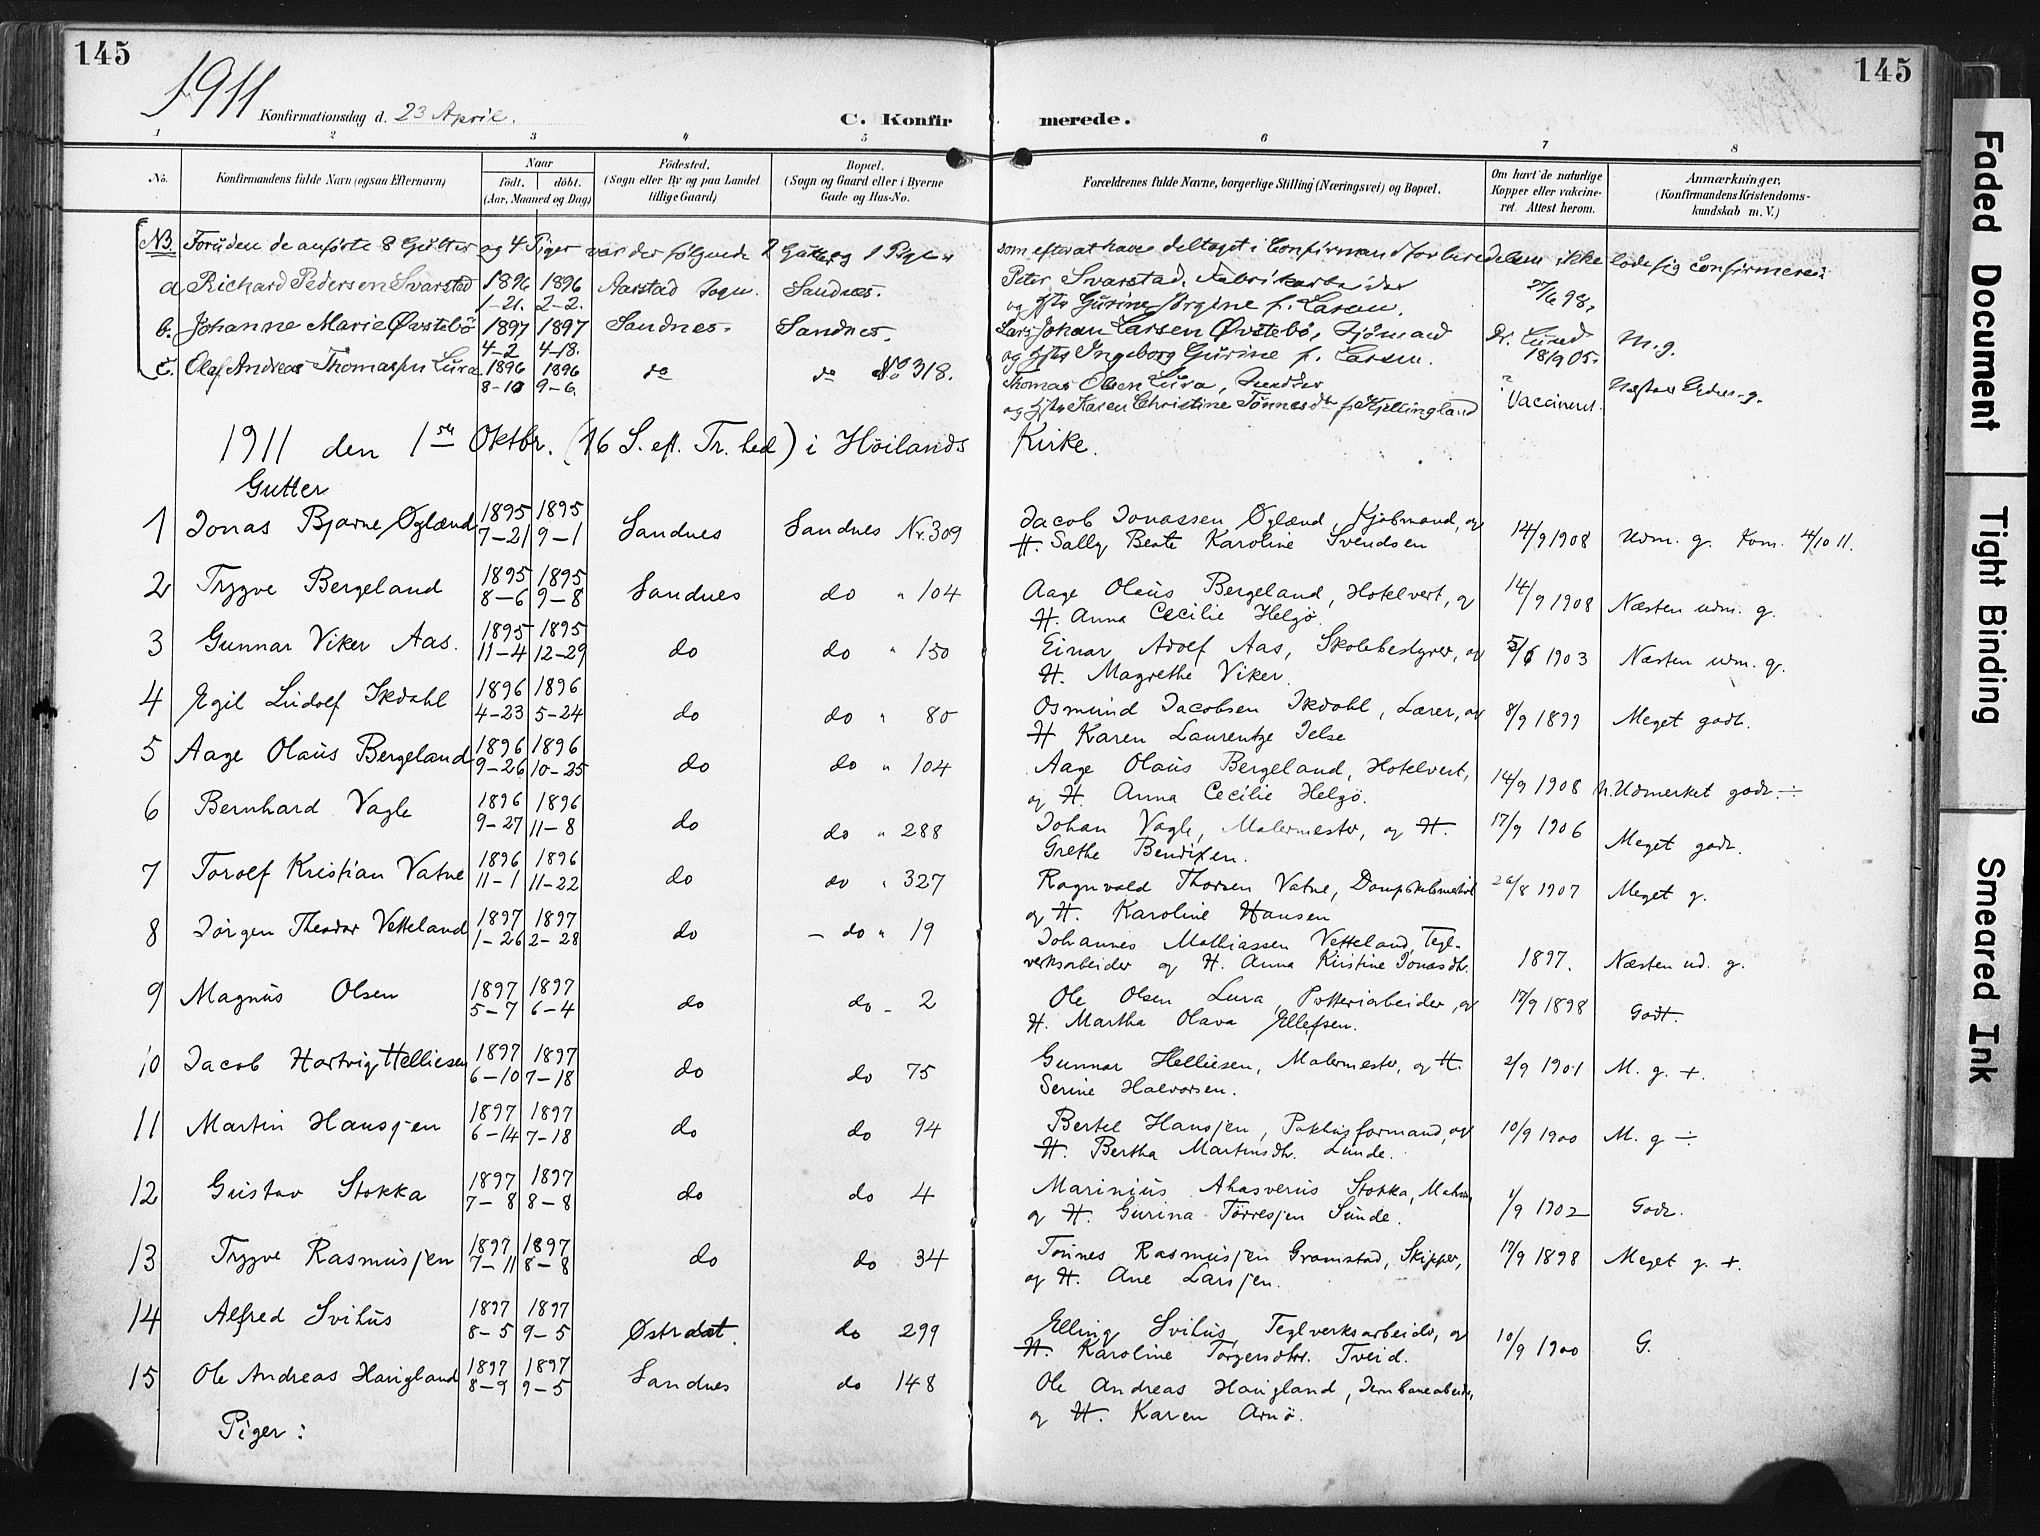 145
145
1911 Konfirmationsdag d. 23 April.
C. Konfirmerede.
1 2 3 4 5 6 7 8
No. Konfirmandens fulde Navn (ogsaa Efternavn)
Naar født. døbt. (Aar, Maaned og Dag)
Fødested. (Sogn eller By og paa Landet tillige Gaard)
Bopæl. (Sogn og Gaard eller i Byerne Gade og Hus-No.
Forældrenes fulde Navne, borgerlige Stilling (Næringsvei) og Bopæl.
Om havt de naturlige Kopper eller vakcineret. Attest herom.
Anmærkninger, (Konfirmandens Kristendomskundskab m. V.)
NB. Foruden de anførte 8 Gutter og 4 Piger var der følgende 2 Gutter og 1 som efter at have deltaget i Confirmandforberedelsen ikke lode sig confirmere:
a Richard Pedersen Svarstad 1896 1-21. 1896 2-2. Aarstad Sogn. Sandnes. Peter Svarstad, Fabrikarbeider 98.
og Hustru Gurine Jørgine f. Larsen.
b. Johanne Marie Øvstebø 1897 4-2 1897 4-18. Sandnes. Sandnes. Lars Johan Larsen Øvstebø, Sjømand Dr. Lund 18/9 05. M.g.
og Hustru Ingeborg Gurine f. Larsen.
c. Olaf Andreas Thomassen Lura 1896 8-10 1896 9-6 do do No 318. Thomas Olsen Lura,
og Hustru Karen Christine Tønnesdtr f. Kjellingland Vaccineret.
1911 den 1ste Oktbr. (16 S. eft. Tr. hed) i Høilands Kirke.
Gutter
1 Jonas Bjarne Øglænd 1895 7-21 1895 9-1 Sandnes Sandnes Nr. 309 Jacob Jonassen Øglænd, Kjøbmand, og 14/9 1908 Udm. g. Kom. 4/10 11.
H. Sally Beate Karoline Svendsen
2 Trygve Bergeland 1895 8-6 1895 9-8 Sandnes do " 104 Aage Olaus Bergeland, Hotelvert, og 14/9 1908 Næsten udm. g.
H. Anna Cecilie Helgø.
3 Gunnar Viker Aas. 1895 11-4 1895 12-29 do do " 150 Einar Adolf Aas, Skolebestyrer, og 5/6 1903 Næsten udm. g.
H. Magrethe Viker.
4 Egil Ludolf Skdahl 1896 4-23 1896 5-24 do do " 80 Osmund Jacobsen Skdahl, Lærer, og 8/9 1899 Meget godt.
H Karen Laurentze Jelse
5 Aage Olaus Bergeland 1896 9-26 1896 10-25 do do " 104 Aage Olaus Bergeland, Hotelvert, 14/9 1908 n. Udmerket godt. ÷
og H. Anna Cecilie Helgø.
6 Bernhard Vagle 1896 9-27 1896 11-8 do do " 288 Johan Vagle, Malermester, og H. 17/9 1906 Meget godt.
Grethe Bendixen.
7 Torolf Kristian Vatne 1896 11-1 1896 11-22 do do " 327 Ragnvald Thorsen Vatne, 26/8 1907 Meget g.
og H. Karoline Hansen
8 Jørgen Theodor Vetteland 1897 1-26 1897 2-28 do - do " 19 Johannes Mathiassen Vetteland, Tegl-
verksarbeider og H. Anna Kirstine Jonasdtr. 1897. Næsten ud. g.
9 Magnus Olsen 1897 5-7 1897 6-4 do do - 2 Ole Olsen Lura, Potteriarbeider, og 17/9 1898 Godt.
H. Martha Olava Ellefsen.
10 Jacob Hartvig Helliesen 1897 6-10 1897 7-18 do do 75 Gunnar Helliesen, Malermester, og H. 2/9 1901 M. g. +.
Serine Halvorsen.
11 Martin Hansen 1897 6-14 1897 7-18 do do 94 Bertel Hansen, Pakhusformand, og 10/9 1900 M. g ÷
H. Bertha Martinsdtr. Lunde.
12 Gustav Stokka 1897 7-8 1897 8-8 do do 4 Marinius Ahasverus Stokka, Maler 1/9 1902 Godt.
og H. Gurina Tørresen Sunde.
13 Trygve Rasmussen 1897 7-11 1897 8-8 do do 34 Tønnes Rasmussen Gramstad, Skipper, 17/9 1898 Meget g. +.
og H. Ane Larsen.
14 Alfred Svihus 1897 8-5 1897 9-5 Østradt. do 299 Elling Svihus, Teglverksarbeider, og 10/9 1900 G.
H. Karoline Torgersdtr. Tveid.
15 Ole Andreas Haugland 1897 8-9 1897 9-5 Sandnes do 148 Ole Andreas Haugland, Jernbanearbeider,
og H. Karen Arnø.
Piger:
Faded Document
Tight Binding
Smeared Ink